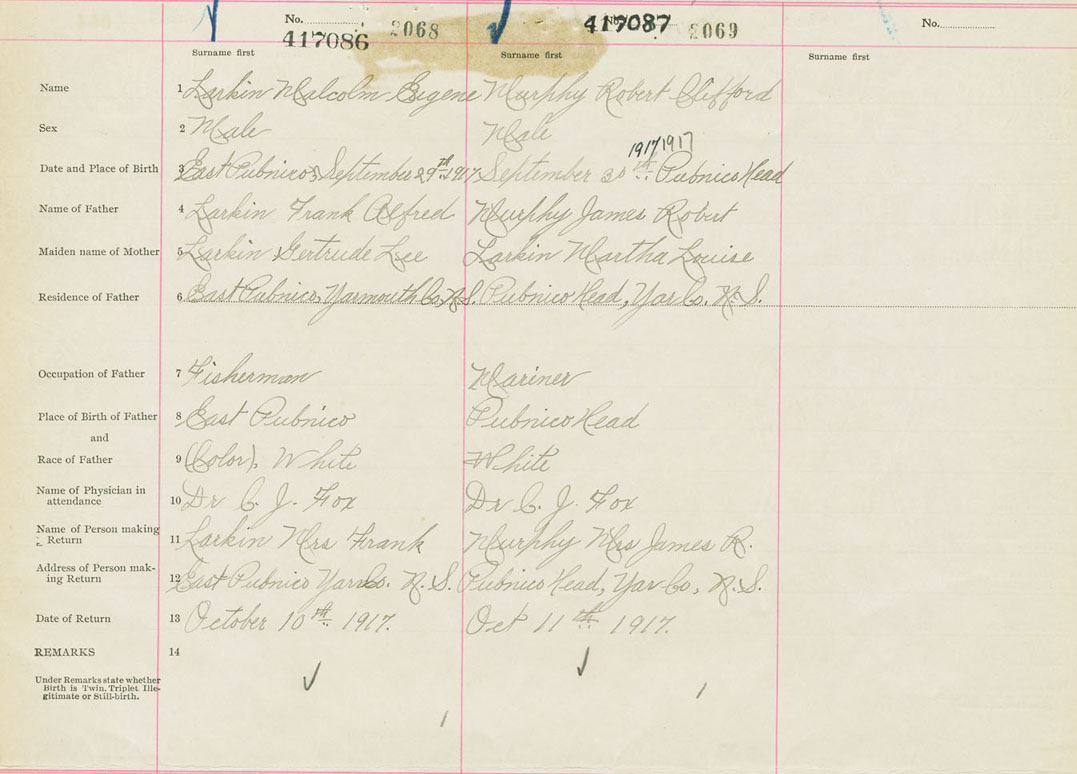 No. 417086 2068 No. 417087 2069 No.
Surname first Surname first Surname first
Name 1 Larkin Malcolm Eugene Murphy Robert Clifford
Sex 2 Male Male
1917/1917
Date and Place of Birth 3 East Pubnico, September 29th 1917 September 30th Pubnico Head
Name of Father 4 Larkin Frank Alfred Murphy James Robert
Maiden name of Mother 5 Larkin Gertrude Lee Larkin Martha Louise
Residence of Father 6 East Pubnico, Yarmouth Co, N.S. Pubnico Head, Yar Co. N.S.
Occupation of Father 7 Fisherman Mariner
Place of Birth of Father 8 East Pubnico Pubnico Head
and
Race of Father 9 (Color), White White
Name of Physician in
attendance 10 Dr C. J. Fox Dr C. J. Fox
Name of Person making
Return 11 Larkin Mrs Frank Murphy Mrs James R.
Address of Person mak-
ing Return 12 East Pubnico Yar Co. N.S. Pubnico Head, Yar Co, N.S.
Date of Return 13 October 10th 1917. Oct 11th 1917.
REMARKS 14
Under Remarks state whether
Birth is Twin, Triplet Ille-
gitimate or Still-birth.